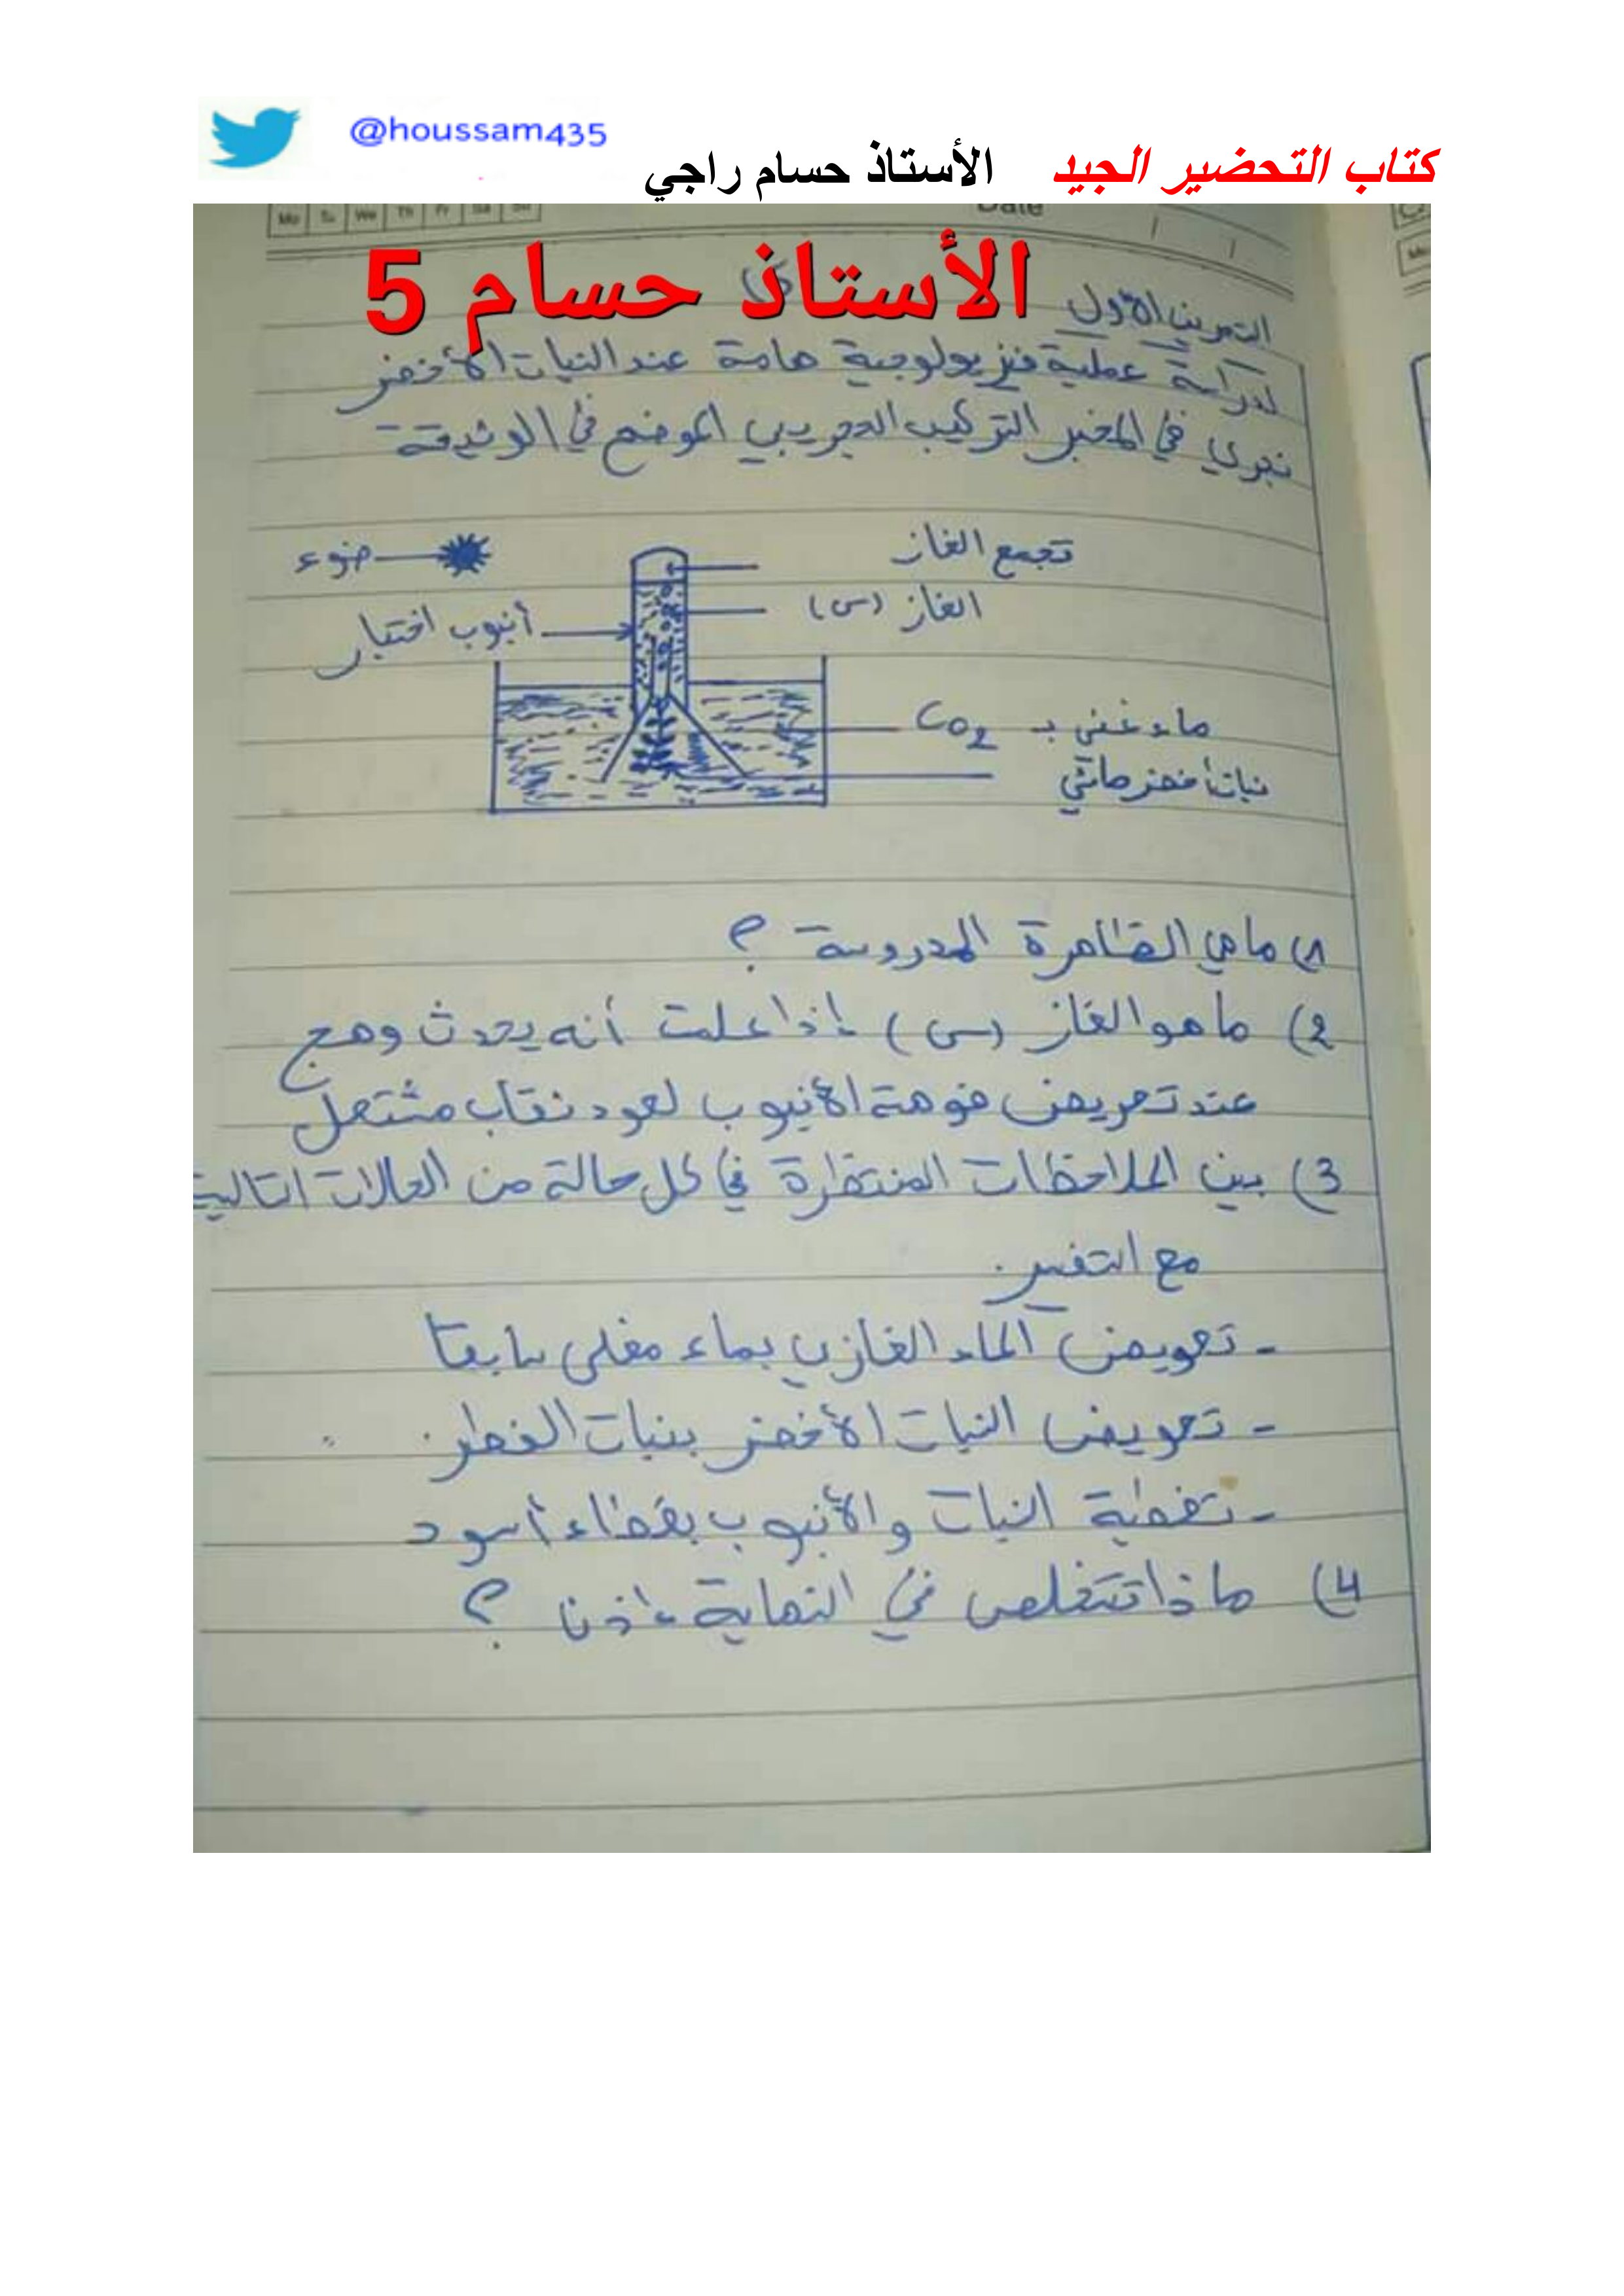 @houssam435
كتاب التحضير الجيد الأستاذ حسام راجي
Mo Tu We Th Fr Sa Su
Date
الأستاذ حسام 5
التمرين الأول
لدراسة عملية فيزيولوجية هامة عند النبات الأخضر
نجري في المخبر التركيب التجريبي الموضح في الوثيقة
ضوء
تجمع الغاز
الغاز (س)
أنبوب اختبار
ماء غني بـ CO2
نبات أخضر مائي
1) ماهي الظاهرة المدروسة ؟
2) ما هو الغاز (س) إذا علمت أنه يحدث وهج
عند تعريض فوهة الأنبوب لعود ثقاب مشتعل
3) بين الملاحظات المنتظرة في كل حالة من الحالات التالية
مع التفسير.
- تعويض الماء الغازي بماء مغلى سابقا
- تعويض النبات الأخضر بنبات الفطر.
- تغطية النبات والأنبوب بغطاء أسود
4) ماذا تستخلص في النهاية إذن ؟